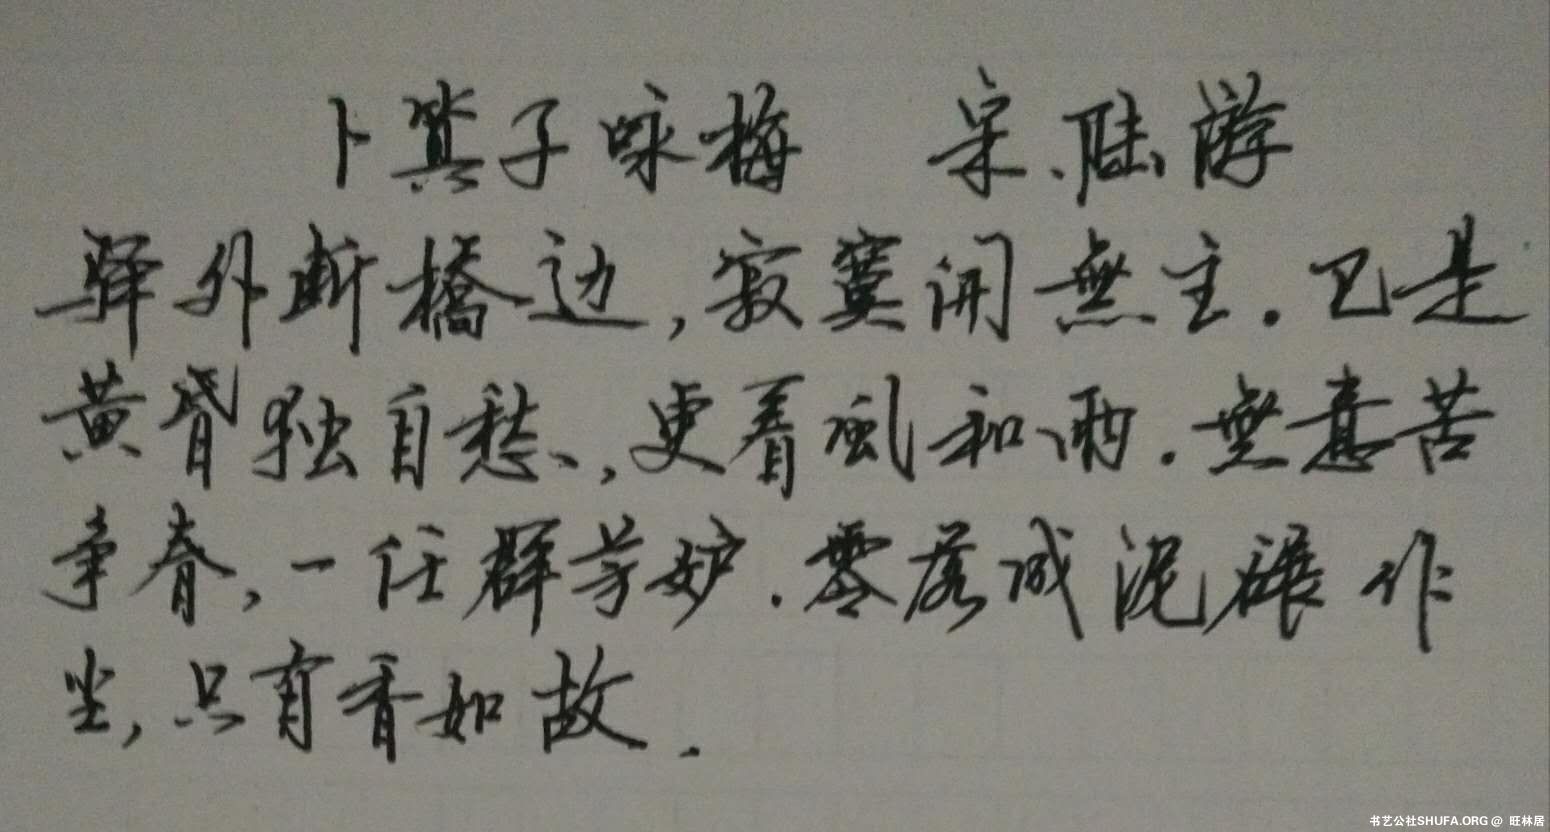 卜算子咏梅 宋、陆游
驿外断橋边,寂寞開無主.已是
黄昏独自愁、,更着風和雨.無意苦
争春,一任群芳妒.零落成泥碾作
尘,只有香如故.
书艺公社SHUFA.ORG @ 旺林居